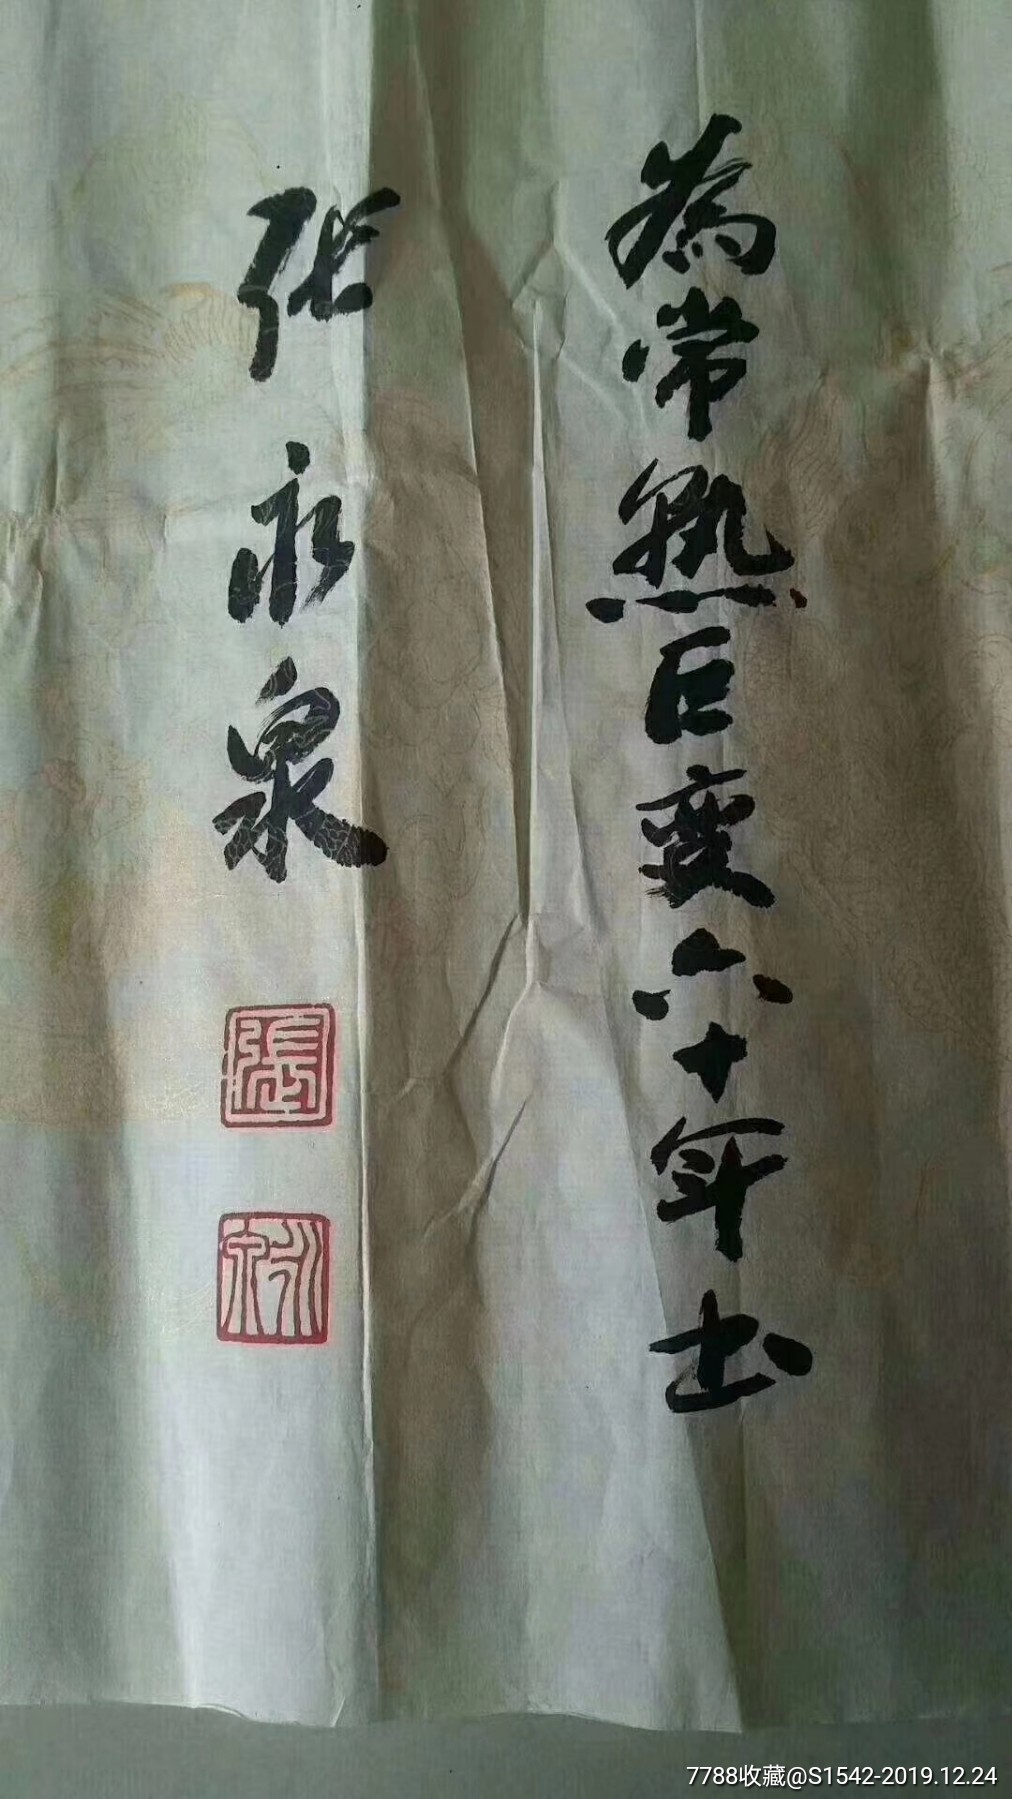 為常熟巨变六十年书
张永泉
張
永泉
7788收藏@S1542-2019.12.24